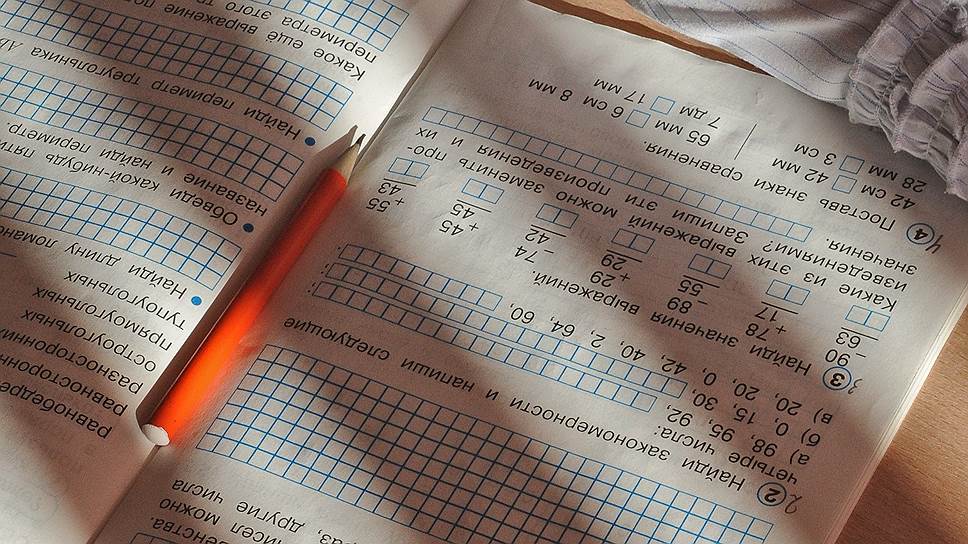 енства.
исел можно
раз, другие числа
2 Найди закономерности и напиши следующие
четыре числа:
а) 98, 95, 92,
б) 0, 15, 30,
в) 20, 20, 0, 42, 40, 2, 64, 60,
3 Найди значения выражений.
− 90 + 78 − 89 + 29 − 74 + 45 + 55
63 17 55 29 42 45 43
Какие из этих выражений можно заменить про-
изведениями? Запиши эти произведения и их
значения.
4 Поставь знаки сравнения.
42 см □ 42 мм 65 мм □ 6 см 8 мм
28 мм □ 3 см 7 дм □ 17 мм
равнобедре
разносторонн
остроугольных
прямоугольных
тупоугольных
• Найди длину ломано
• Обведи какой-нибудь пяти
название и найди периметр.
• Найди периметр треугольника АВ
Какое ещё выражение по
периметра этого т